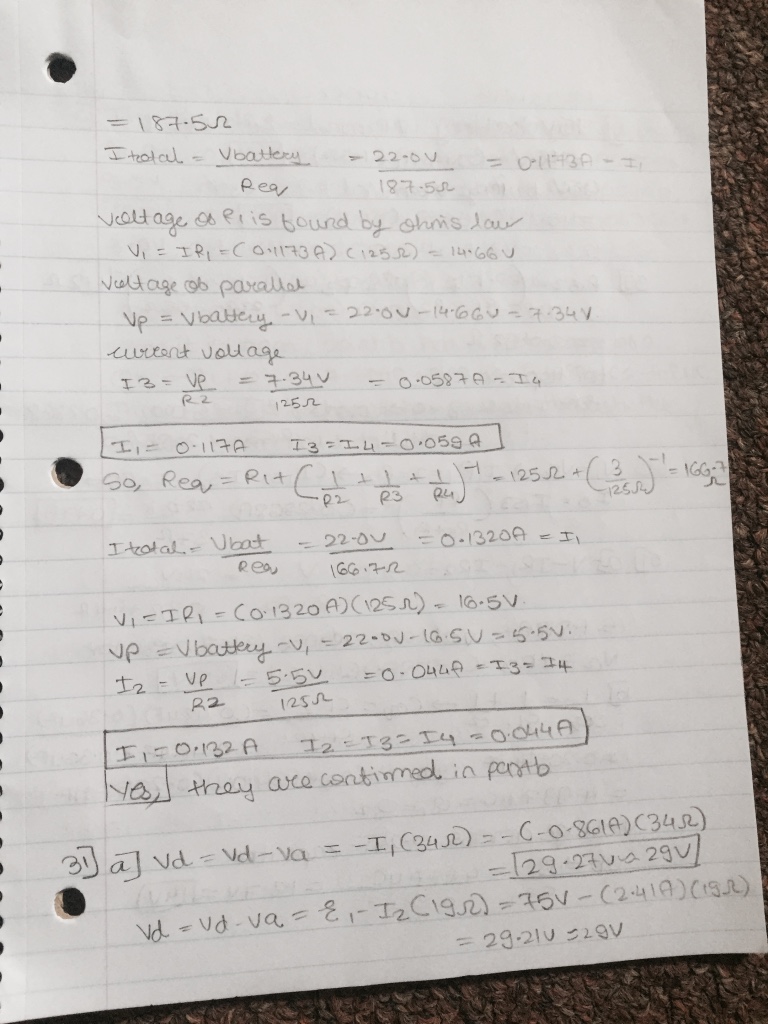 = 187.5Ω
I total = Vbattery / Req = 22.0V / 187.5Ω = 0.1173A = I1
voltage of R1 is found by ohms law
V1 = IR1 = (0.1173A) (125Ω) = 14.66V
voltage of parallel
Vp = Vbattery - V1 = 22.0V - 14.66V = 7.34V
current voltage
I3 = Vp / R2 = 7.34V / 125Ω = 0.0587A = I4
I1 = 0.117A I3 = I4 = 0.059A
So, Req = R1 + (1/R2 + 1/R3 + 1/R4)^-1 = 125Ω + (3/125Ω)^-1 = 166.7Ω
I total = Vbat / Req = 22.0V / 166.7Ω = 0.1320A = I1
V1 = IR1 = (0.1320A)(125Ω) = 16.5V
Vp = Vbattery - V1 = 22.0V - 16.5V = 5.5V.
I2 = Vp / R2 = 5.5V / 125Ω = 0.044A = I3 = I4
I1 = 0.132A I2 = I3 = I4 = 0.044A
Yes, they are confirmed in part b
31] a] Vd = Vd - Va = -I1(34Ω) = -(-0.861A)(34Ω)
= 29.27V ≈ 29V
Vd = Vd - Va = ℰ1 - I2(19Ω) = 75V - (2.41A)(19Ω)
= 29.21V = 29V